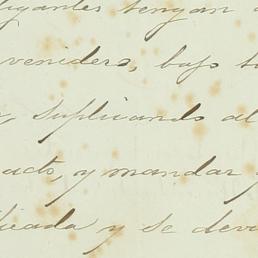 ligantes tengan
venidero, bajo
suplicando al
acto, y mandar
licada y se deve